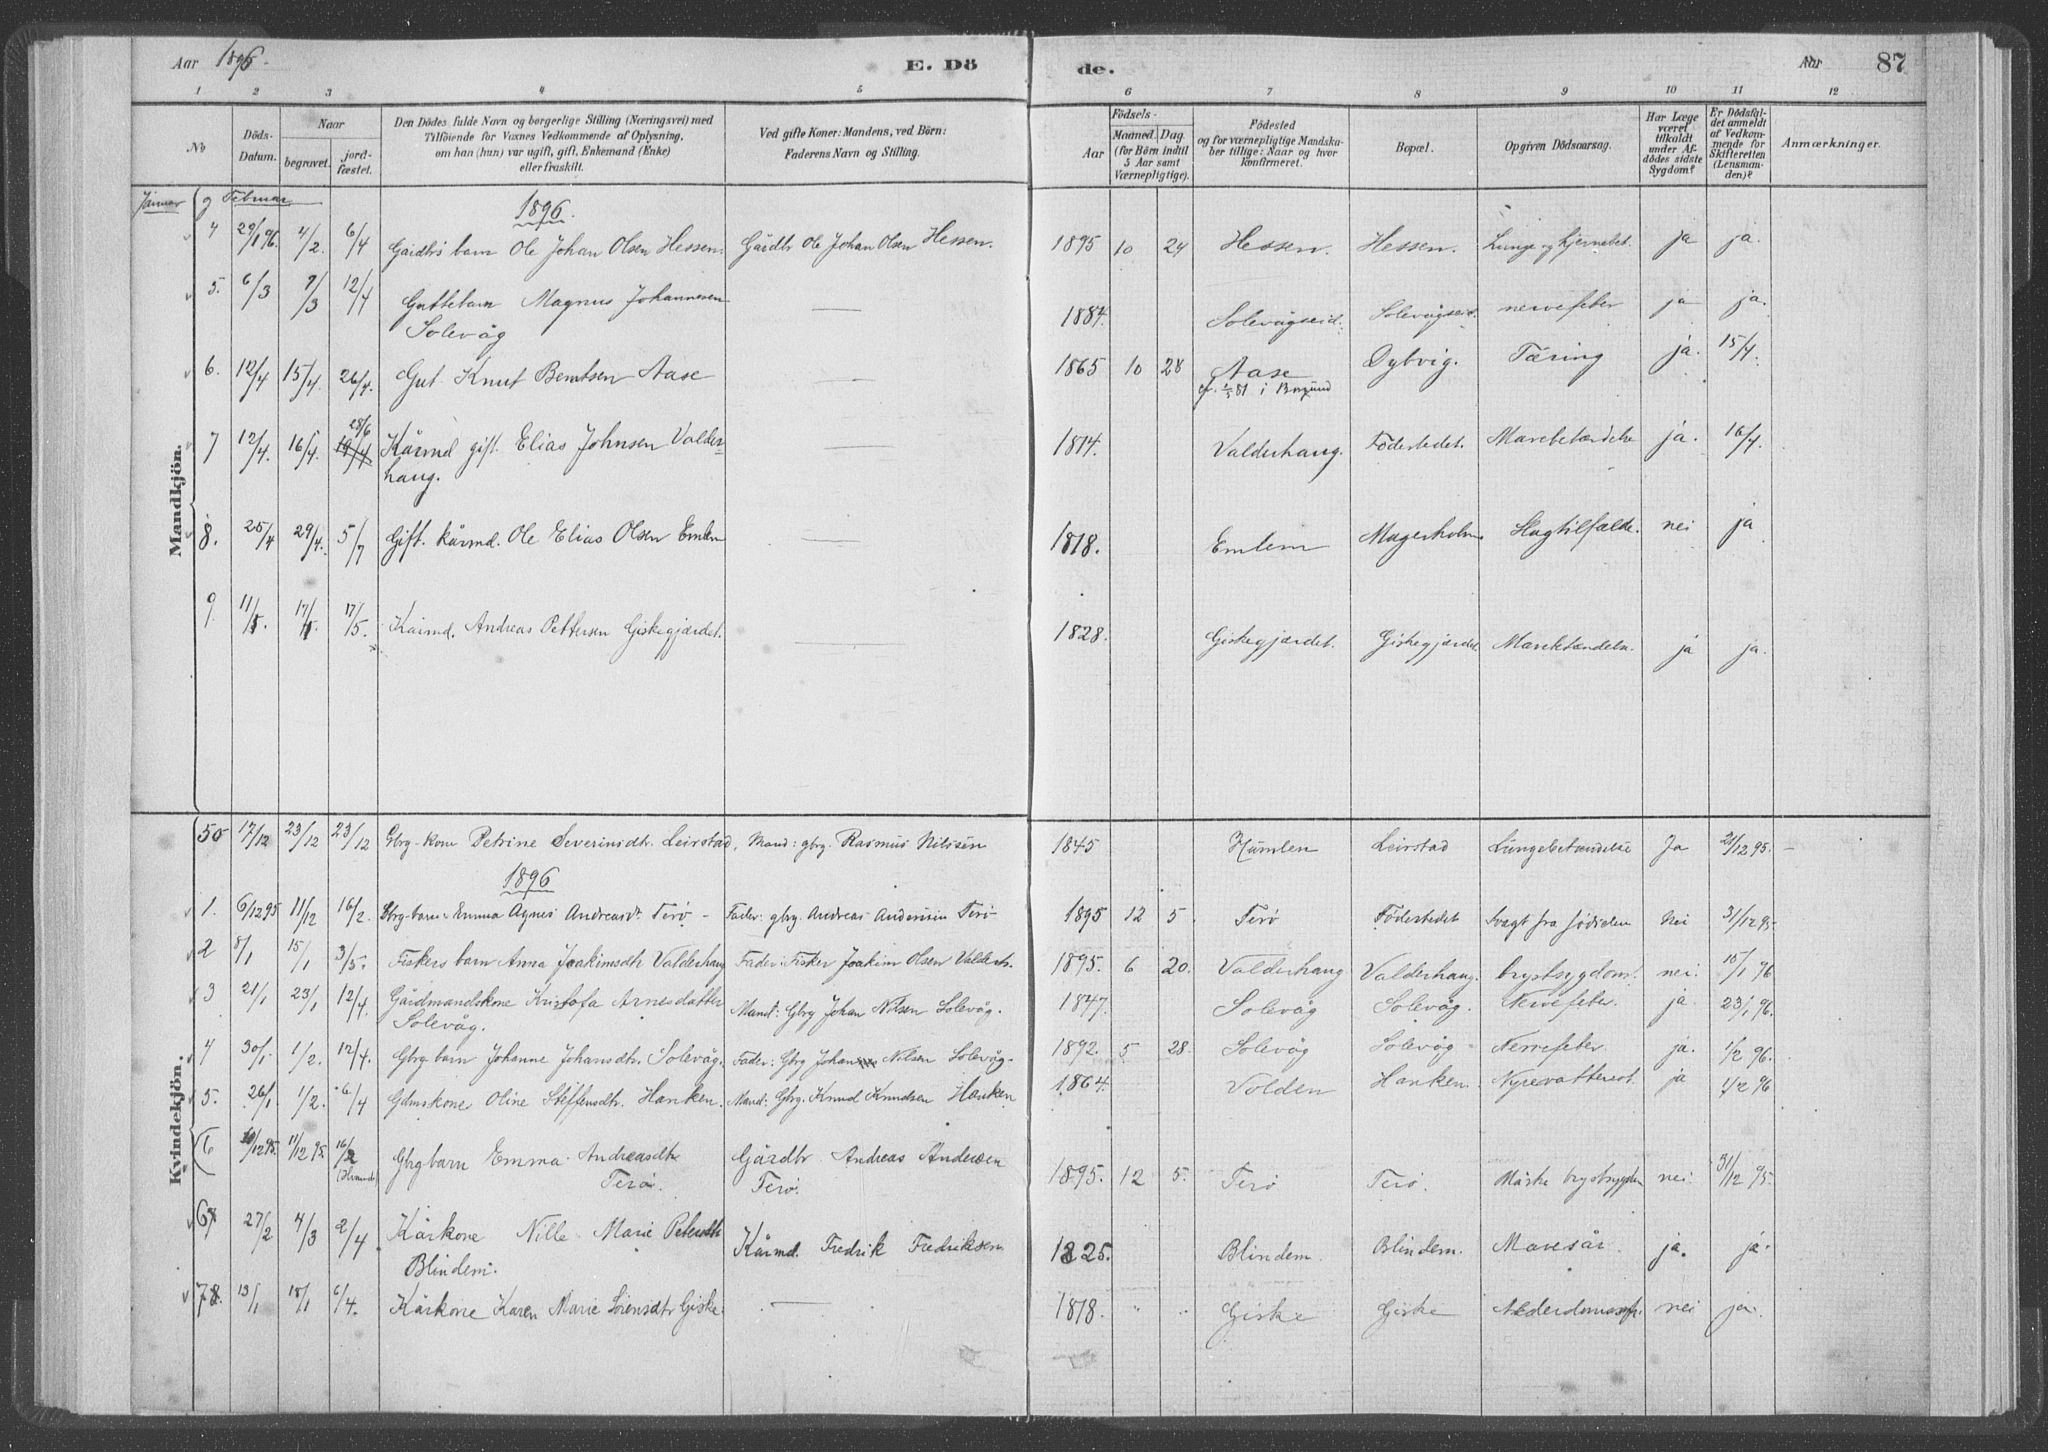 Aar 1896. E. Döde. Aar 87
1 2 3 4 5 6 7 8 9 10 11 12
No
Döds-Datum.
Naar
begravet.
jord-fæstet.
Den Dödes fulde Navn og borgerlige Stilling (Næringsvei) med
Tilföiende for Voxnes Vedkommende af Oplysning,
om han (hun) var ugift, gift, Enkemand (Enke)
eller fraskilt.
Ved gifte Koner: Mandens, ved Börn:
Faderens Navn og Stilling.
Födsels-
Aar
Maaned. Dag.
(for Börn indtil
5 Aar samt
Værnepligtige).
Födested
og for værnepligtige Mandska-
ber tillige: Naar og hvor
konfirmeret.
Bopæl.
Opgiven Dödsaarsag.
Har Læge
været
tilkaldt
under Af-
dödes sidste
Sygdom?
Er Dödsfal-
det anmeldt
af Vedkom-
mende for
Skifteretten
(Lensman-
den)?
Anmærkninger.
Januar og Februar
1896.
Mandkjön.
4 29/1 96. 4/2. 6/4 Gaidbr barn Ole Johan Olsen Hessen. Gaidbr Ole Johan Olsen Hessen. 1895 10 24 Hessen. Hessen. Lunge og hjernebet. ja ja.
5. 6/3 9/3 12/4 Guttebarn Magnus Johannesen 1884. Solevågseid. Solevågseid. nervefeber ja ja.
Solevåg
6. 12/4 15/4. 26/4. Gut Knut Berntsen Aase 1865 10 28 Aase Dybvig. Tæring ja. 15/4.
i Borgund
28/6
7 12/4. 16/4. 19/4 Kårmd gift. Elias Johnsen Valder- 1814. Valderhaug. Födestedet. Mavebetændelse ja. 16/4.
haug.
8. 25/4 29/4. 5/7 Gift. kårmd. Ole Elias Olsen Emlem 1818. Emlem Magerholm Slagtilfælde. nei ja
9. 11/5. 17/5. 17/5. Kårmd. Andreas Pettersen Giskegjærdet. 1828. Giskegjærdet. Giskegjærdet. Mavebetændelse. ja ja.
Kvindekjön.
50 17/12 23/12 23/12 Gbrg-kone Petrine Severinsdtr. Leirstad, Mand: gbrg. Rasmus Nilsen 1845 Humlen Leirstad Lungebetændelse Ja 21/12 95. –
1896
1. 6/12 95 11/12 16/2. Gbrg-barn Emma Agnes Andreasdr. Terø - Fader: gbrg. Andreas Andersen Terø 1895 12 5. Terø Födestedet Svagt fra fødselen Nei 31/12 95.
2 8/1 15/1 3/5. Fiskers barn Anna Joakimsdtr Valderhaug Fader: Fisker Joakim Olsen Valderh. 1895. 6 20. Valderhaug Valderhaug. brystsygdom. nei. 15/1 96
3 21/1 23/1 12/4. Gårdmandskone Kristofa Arnesdatter Mand: Gbrg Johan Nilsen Solevåg. 1847. Solevåg Solevåg. Nervefeber. ja. 23/1 96.
Solevåg.
4 30/1 1/2. 12/4. Gbrg barn Johanne Johansdtr. Solevåg. Fader: Gbrg Johan Nilsen Solevåg. 1892. 5 28. Solevåg Solevåg Nervefeber ja. 1/2 96.
5. 26/1 1/2. 6/4 Gdmskone Oline Steffensdtr. Hanken. Mand: Gbrg. Knud Knudsen Hanken 1864. Volden Hanken. Nyrevattersot. ja 1/2 96
(6 10/12 95. 11/12 95. 16/2 Gbrg barn Emma Andreasdtr Gårdbr Andreas Andersen 1895. 12 5. Terø Terø. Måske brystsygdom nei. 31/12 95.
Terø. Terø.
6 27/2 4/3 2/4 Kårkone Nille Marie Petersdtr Kårmd. Fredrik Fredriksen 1825. Blindem. Blindem. Mavesår. ja. ja.
Blindem.
7 13/1 18/1 6/4. Kårkone Karen Marie Sörensdtr Giske — 1818. " " Giske Giske Alderdomssvagh. nei ja.